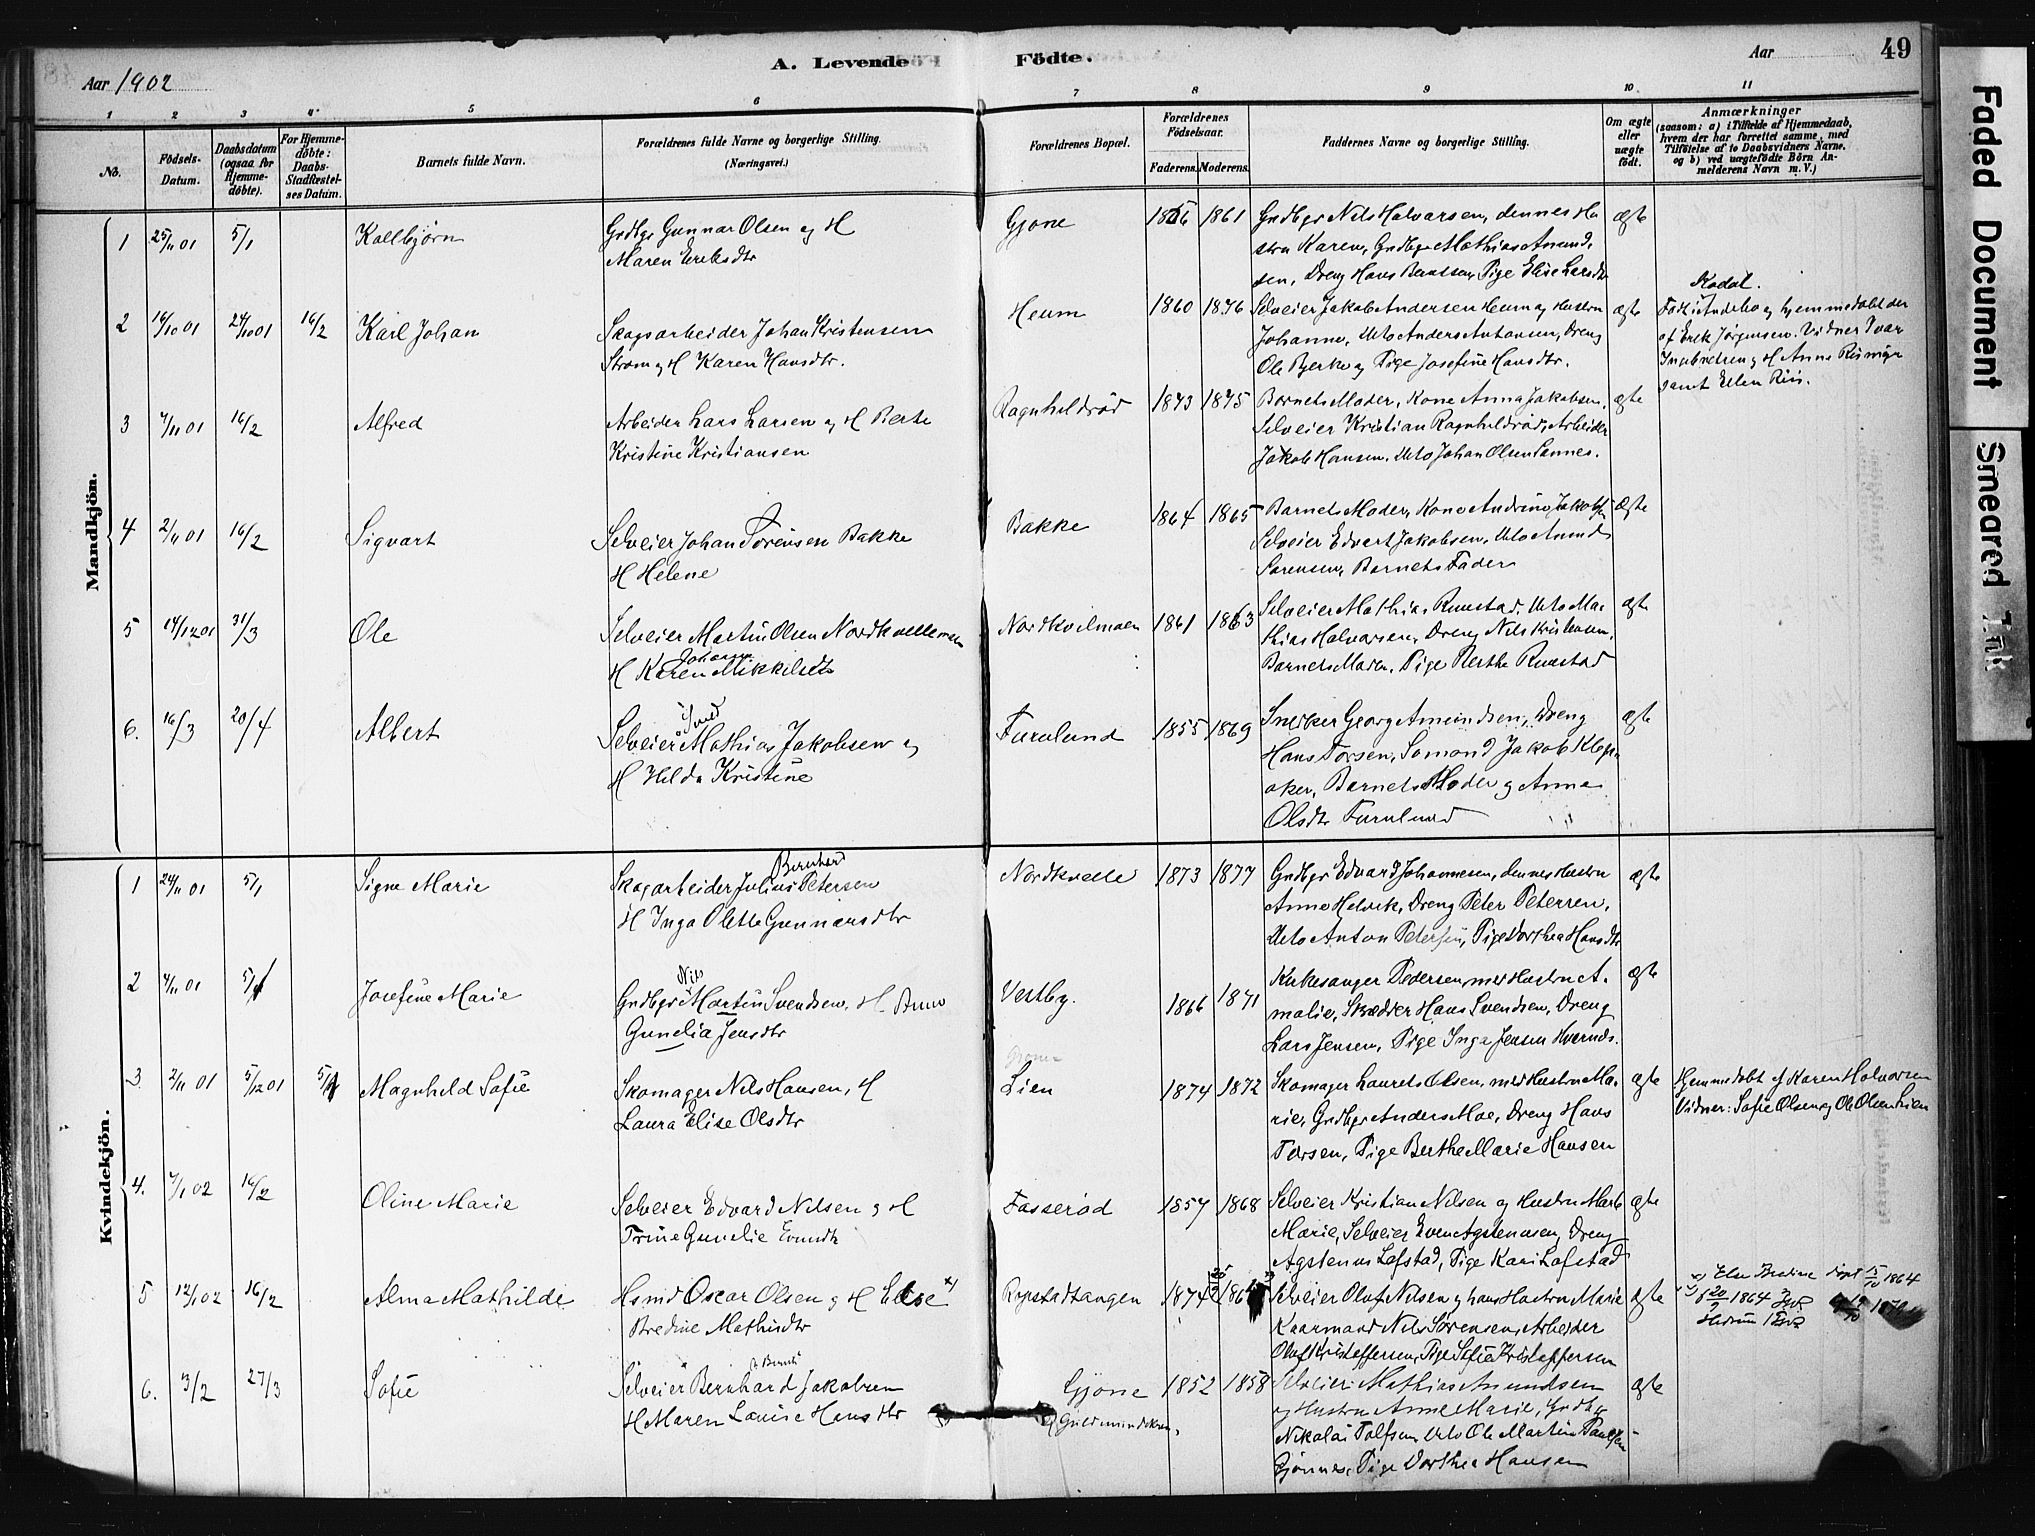 Aar 1902
A. Levende Födte.
Aar
49
1 2 3 4 5 6 7 8 9 10 11
No.
Födsels-Datum.
Daabsdatum (ogsaa for Hjemme-döbte).
For Hjemme-döbte: Daabs-Stadfæstel-ses Datum.
Barnets fulde Navn.
Forældrenes fulde Navne og borgerlige Stilling.
(Næringsvei.)
Forældrenes Bopæl.
Forældrenes Födselsaar.
Faderens. Moderens.
Faddernes Navne og borgerlige Stilling.
Om ægte eller uægte födt.
Anmærkninger
(saasom: a) i Tilfælde af Hjemmedaab,
hvem der har forrettet samme, med
Tilföielse af to Daabsvidners Navne,
og b) ved uægtefödte Börn An-
melderens Navn m. V.)
Mandkjön.
1 25/11 01 5/1 Kolbjørn
Grdbgr Gunnar Olsen og H
Maren Eriksdtr
Gjone 1861
Grdbgr Nils Halvorsen, dennes Hu
stru Karen, Grdbgr Mathias Amund
sen, Dreng Hans Bentsen, Pige Elise Larsdtr
ægte
2 16/10 01 24/10 01 16/2 Karl Johan
Skogsarbeider Johan Kristensen
Strøm og H Karen Hansdtr.
Heum 1860 1876
Selveier Jakob Andersen Heum og Hustru
Johanne, Ucto Anders Antonsen, Dreng
Ole Bjerke og Pige Josefine Hansdtr.
ægte
Kodal.
Født i Andebo og hjemmedøbt der
af Erik Jørgensen. Vidner Ivar
og H Anne
samt Ellen Riis.
3 7/11 01 16/2 Alfred
Arbeider Lars Larsen og H Berte
Kristine Kristiansen
Ragnhildrød 1873 1875
Barnets Moder, Kone Anna Jakobsen,
Selveier Kristian Ragnhildrød, Arbeider
Jakob Hansen, Ucto Johan Olsen Sannes.
ægte
4 2/11 01 16/2 Sigvart
Selveier Johan Sørensen Bakke
H Helene
Bakke 1864 1865
Barnets Moder, Kone Andrine Jakobsen
Selveier Edvart Jakobsen, Ucto Amund
Sørensen, Barnets Fader
ægte
5 14/12 01 31/3 Ole
Selveier Martin Olsen Nordkvellemoen
H Karen Johanne Mikkilsdtr
Nordkvilmoen 1861 1863
Selveier Mathias Ruestad, Ucto Ma-
thias Halvorsen, Dreng Nils Kristensen,
Barnets Moder, Pige Berthe Ruestad
ægte
6. 16/3 20/4 Albert
Selveier Mathias Jakobsen og
H Hilda Kristine
Furulund 1855 1869
Snedker Georg Amundsen, Dreng
Hans Torsen, Sømand Jakob Klep
aker, Barnets Moder og Anna
Olsdtr Furulund
ægte
Kvindekjön.
1 24/11 01 5/1 Signe Marie
Skogarbeider Julius Bernhard Petersen
H Inga Olette Gunnarsdtr
Nordkvelle 1873 1877
Grdbgr Edvard Johannesen, dennes Hustru
Anne Helvik, Dreng Peter Petersen,
Ucto Anton Petersen, Pige Dorthea Hansdtr
ægte
2 4/11 01 Josefine Marie
Grdbgr Nils Martin Svendsen, H Anne
Gunelia Jensdtr
Vestby. 1866 1871
Kirkesanger Pedersen med Hustru A-
malie, Skrædder Hans Svendsen, Dreng
Lars Jensen, Pige Inga Jensen
ægte
3 2/11 01 5/12 01 Magnhild Sofie
Skomager Nils Hansen, H
Laura Elise Olsdtr
Lien 1874 1872
Skomager Laurets Olsen, med Hustru Ma-
rie, Grdbgr Anders Moe, Dreng Hans
Torsen, Pige Berthe Marie Hansen
ægte
Hjemmedøbt af Karen Halvorsen
Vidner: Sofie Olsen og Ole Olsen Lien
4. 7/1 02 16/2 Oline Marie
Selveier Edvard Nilsen og H
Trine Gunelie Evensdtr
Fosserød 1857 1868
Selveier Kristian Nilsen og Hustru
Marie, Selveier Even Agstensen, Dreng
Agsten Lofstad, Pige Kari Lofstad
ægte
5 12/1 02 16/2 Alma Mathilde
Hsmd Oscar Olsen og H Else x)
Bredine Mathisdtr
Ropstadtangen 1874
Selveier Oluf Nilsen og hans Hustru Marie
Kaarmand Nils Sørensen, Arbeider
Oluf Kristoffersen, Pige Sofie Kristoffersen
ægte
x) Else Bredine døpt 15/10 1864
f 20/9 1864
6. 13/2 27/3 Sofie
Selveier Bernhard Jakobsen
H Maren Louise Hansdtr
Gjone 1852 1858
Selveier Mathias Amundsen
og Hustru Anne Marie, Grdbgr
Nikolai Tolfsen, Ucto Ole Martin Paulsen
Gjønnes, Pige Dorthea Hansen
ægte
Faded Document
Smeared Ink